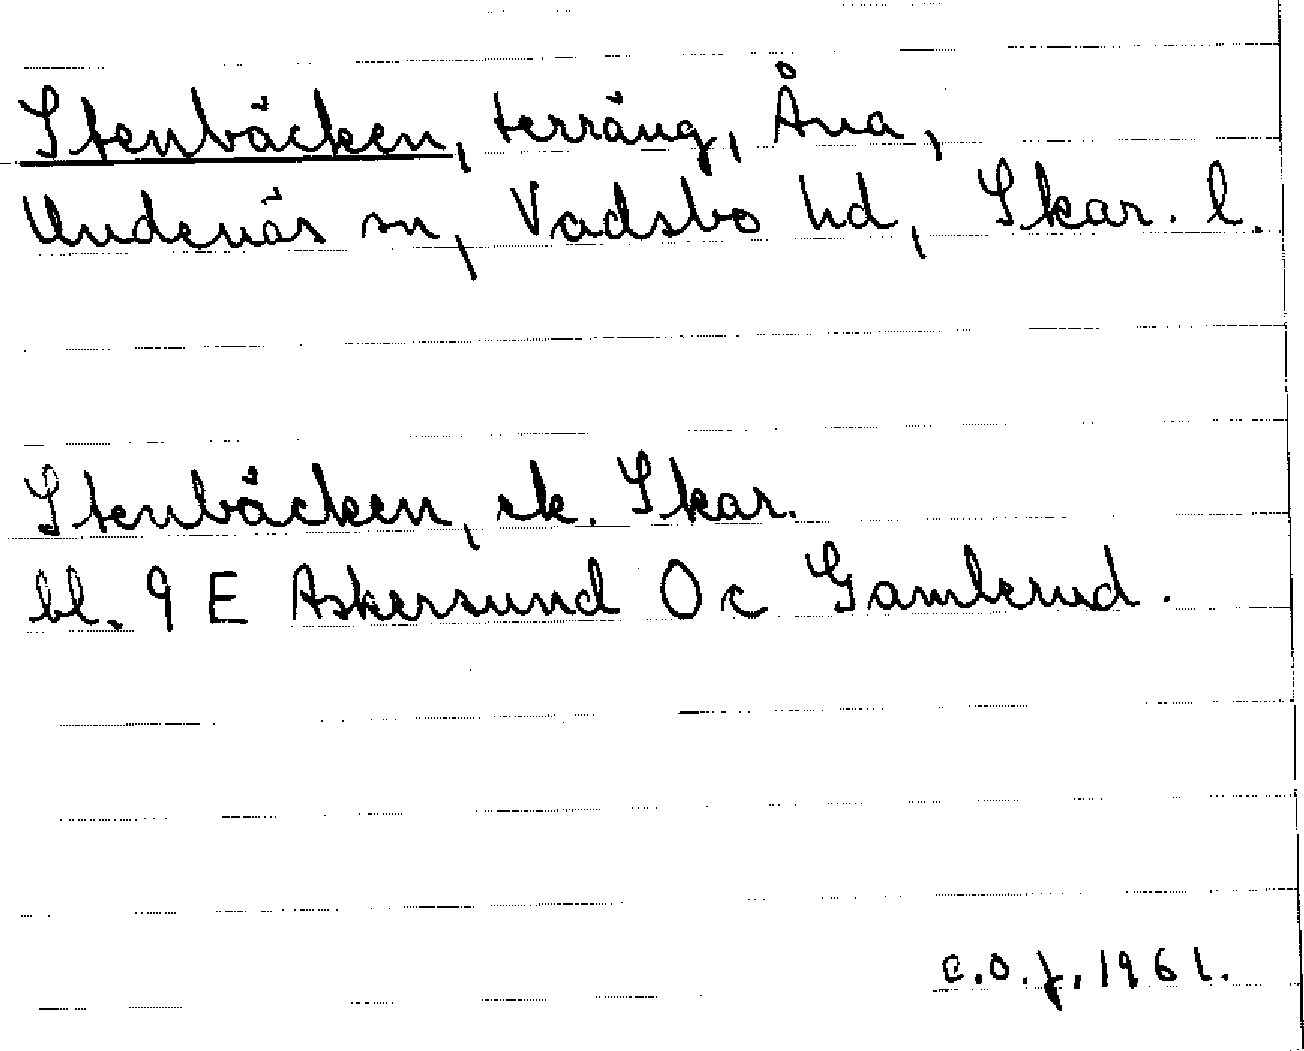 Stenbäcken, terräng, Åna,
Undenäs sn, Vadsbo hd, Skar. l.
Stenbäcken, ek. Skar.
bl. 9 E Askersund 0 c Gamlerud.
c.o.f. 1961.